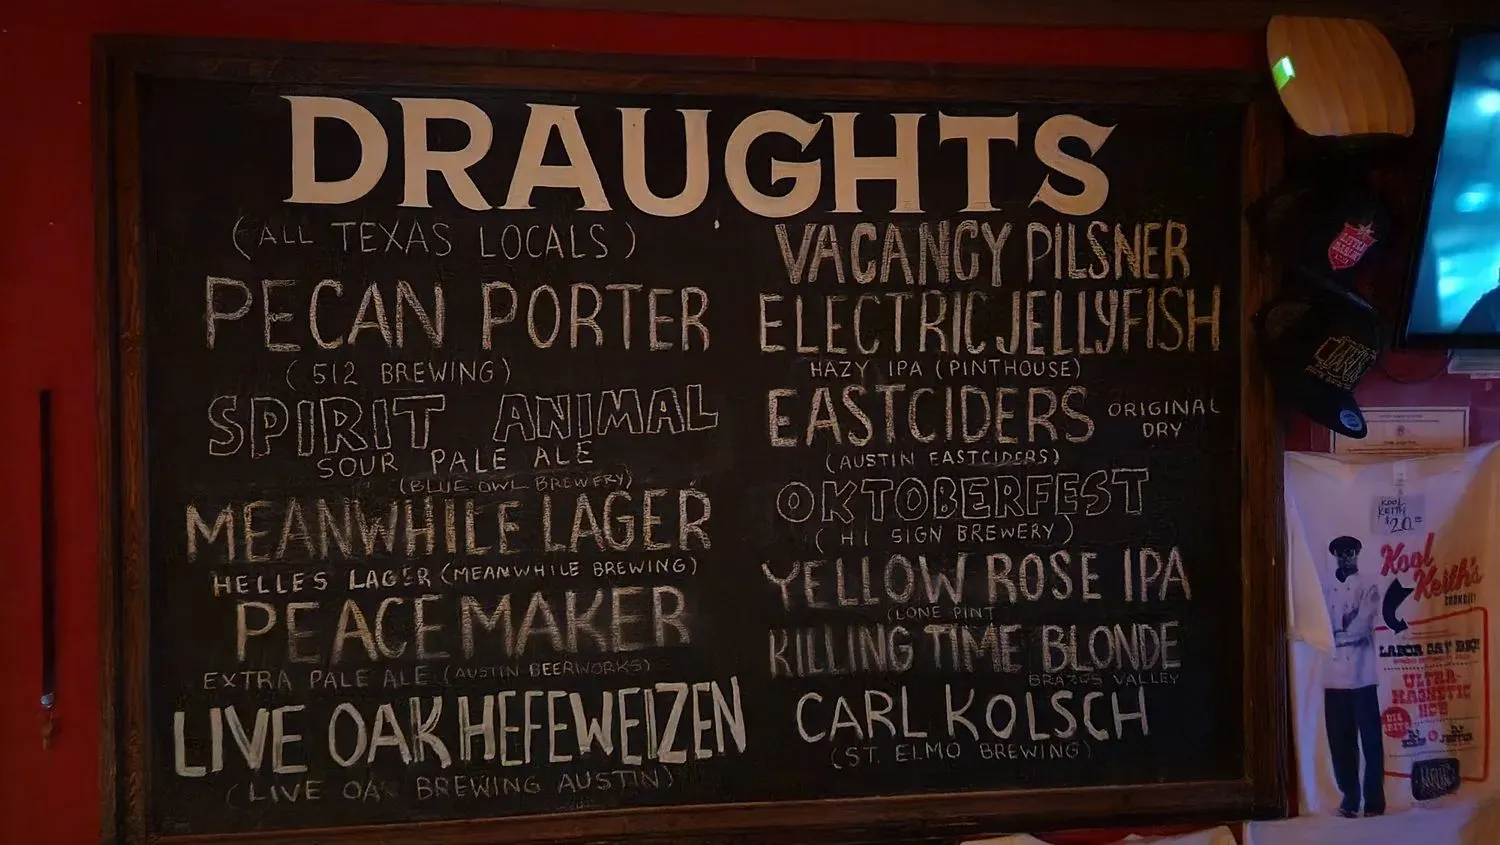 DRAUGHTS
(ALL TEXAS LOCALS)
PECAN PORTER
(512 BREWING)
SPIRIT ANIMAL
SOUR PALE ALE
(BLUE OWL BREWERY)
MEANWHILE LAGER
HELLES LAGER (MEANWHILE BREWING)
PEACEMAKER
EXTRA PALE ALE (AUSTIN BEERWORKS)
LIVE OAK HEFEWEIZEN
(LIVE OAK BREWING AUSTIN)
VACANCY PILSNER
ELECTRIC JELLYFISH
HAZY IPA (PINTHOUSE)
EASTCIDERS ORIGINAL
DRY
(AUSTIN EASTCIDERS)
OKTOBERFEST
(HI SIGN BREWERY)
YELLOW ROSE IPA
(LONE PINT
KILLING TIME BLONDE
BRAZOS VALLEY
CARL KOLSCH
(ST. ELMO BREWING)
KOOL
KEITH
$20
Kool
Keith's
LABOR DAY BBQ!
ULTRA-
MAGNETIC